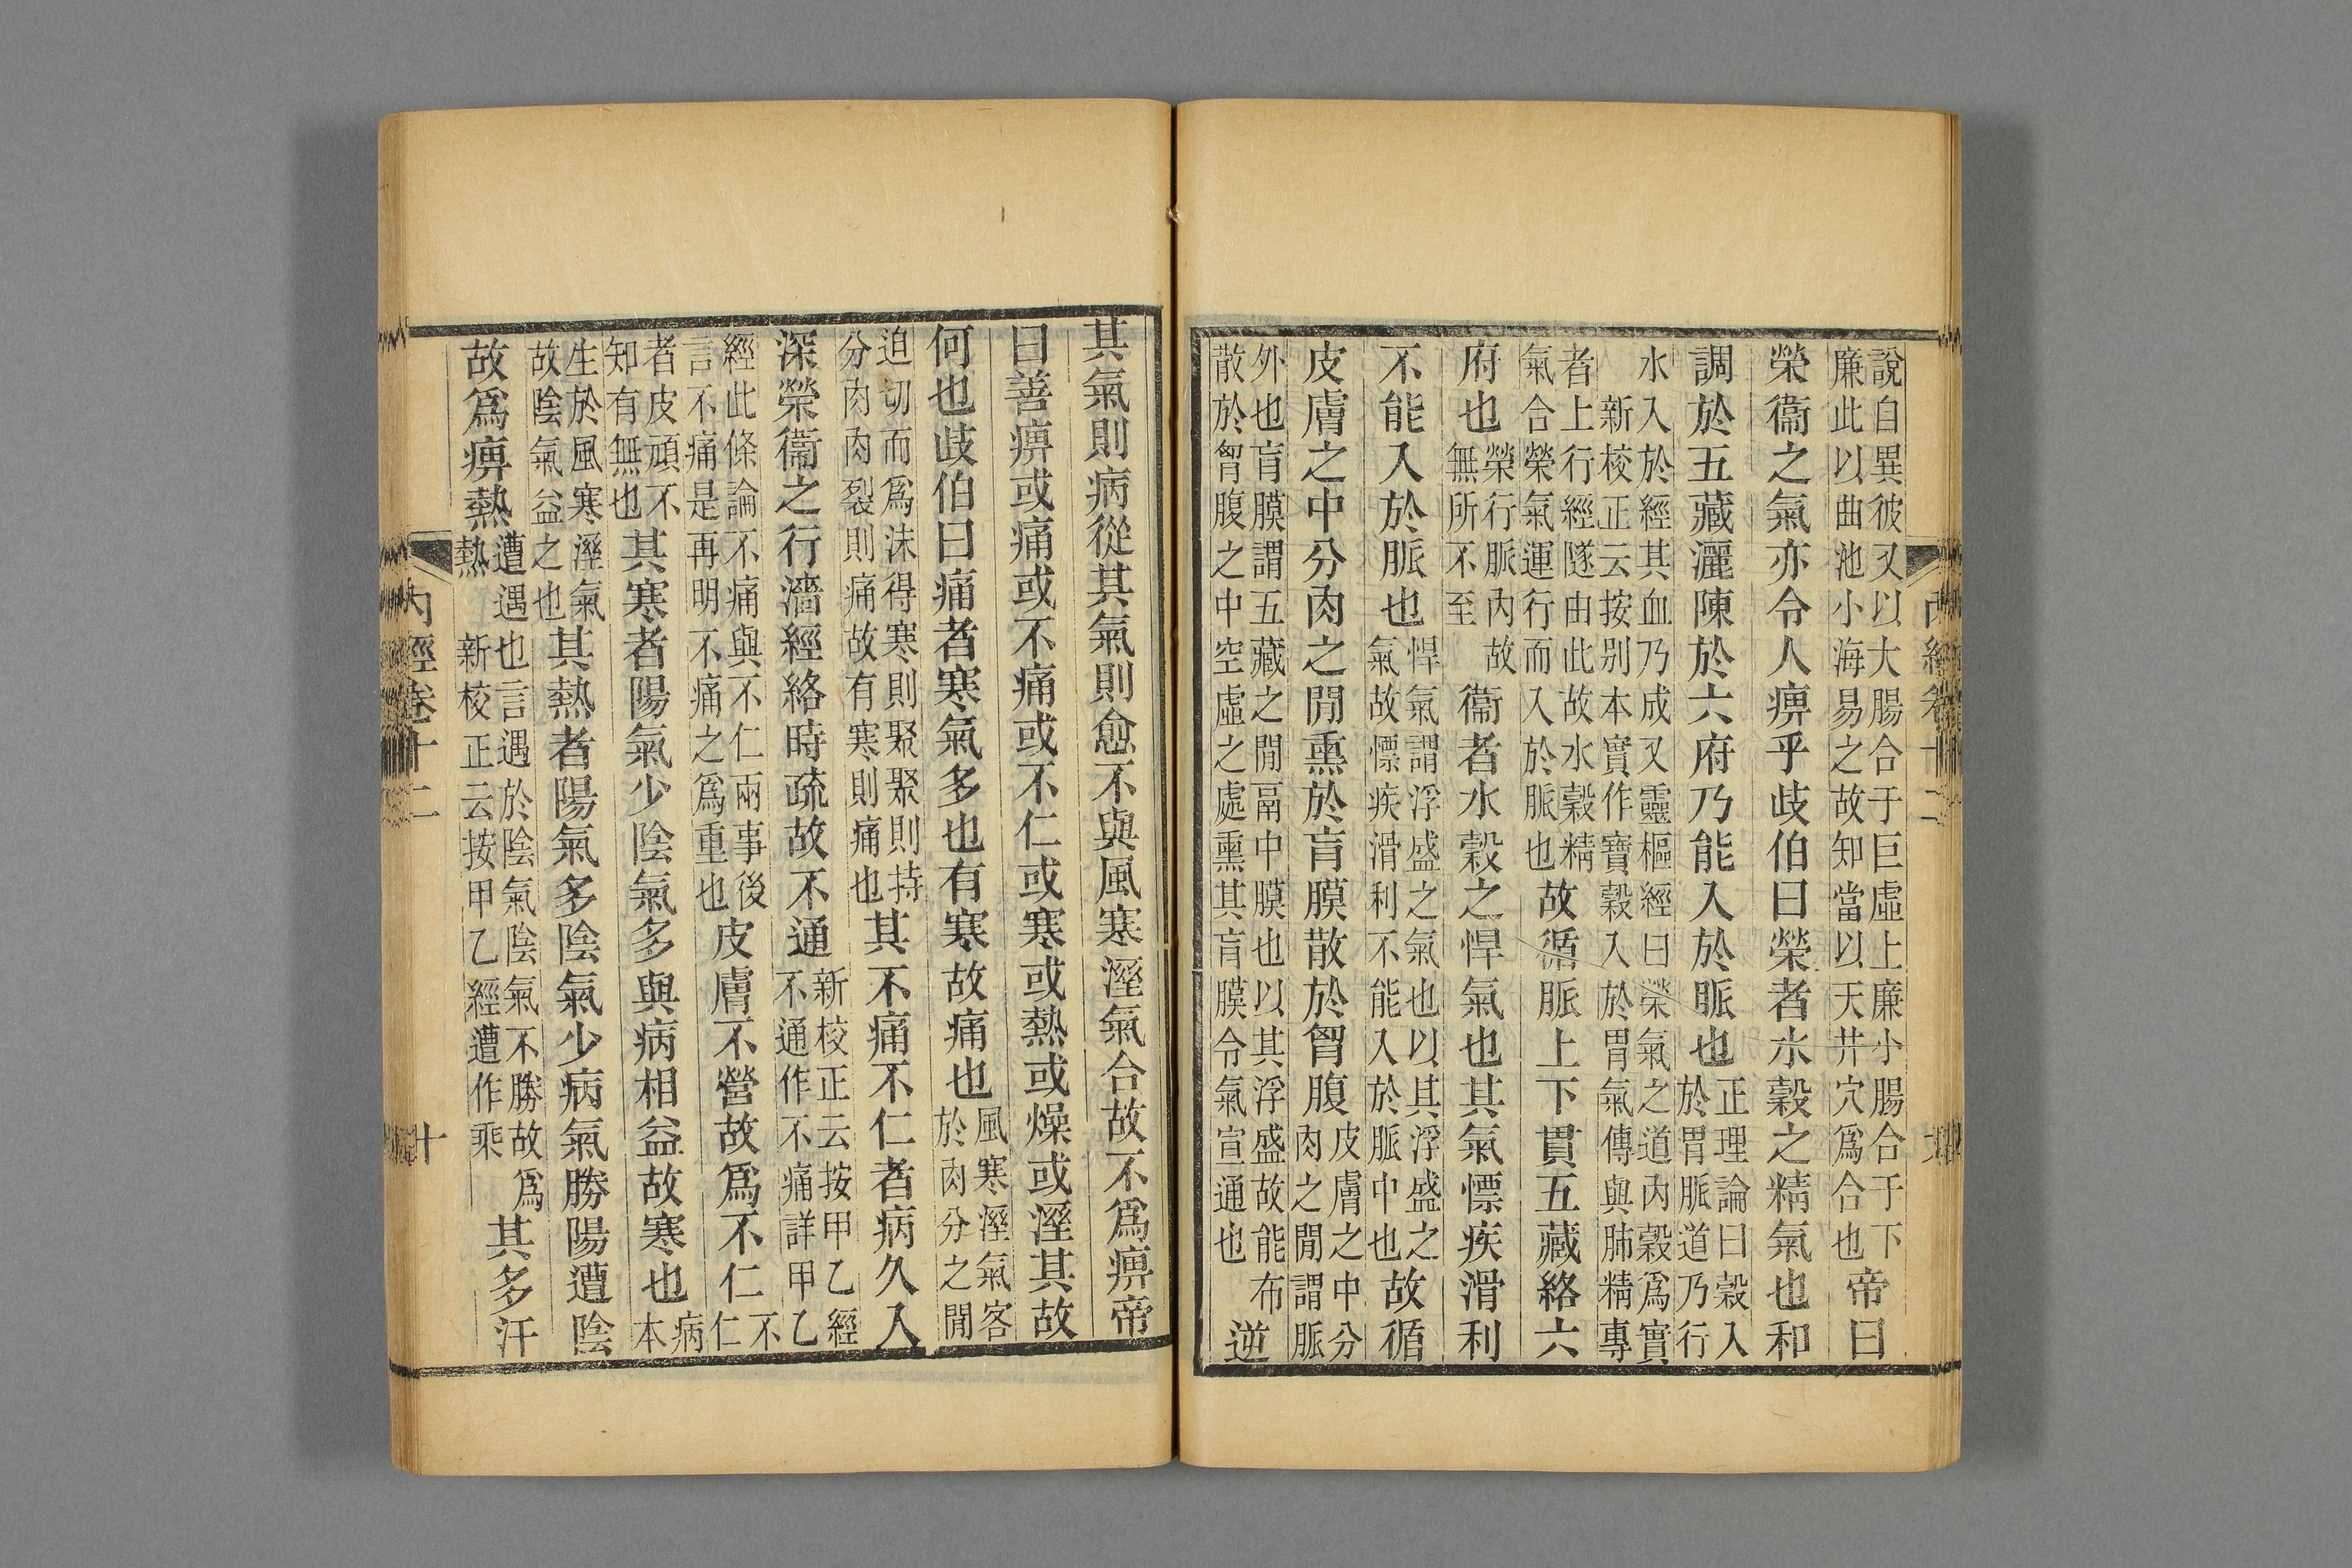 說自異彼又以大腸合于巨虛上廉小腸合于下
廉此以曲池小海易之故知當以天井穴爲合也
帝曰
榮衞之氣亦令人痹乎歧伯曰榮者水穀之精氣也和
調於五藏灑陳於六府乃能入於脈也
正理論曰穀入
於胃脈道乃行
水入於經其血乃成又靈樞經曰榮氣之道內穀爲實
新校正云按别本實作寶穀入於胃氣傳與肺精專
者上行經隧由此故水穀精
氣合榮氣運行而入於脈也
故循脈上下貫五藏絡六
府也
榮行脈內故
無所不至
衞者水穀之悍氣也其氣慓疾滑利
不能入於脈也
悍氣謂浮盛之氣也以其浮盛之
氣故慓疾滑利不能入於脈中也
故循
皮膚之中分肉之閒熏於肓膜散於胷腹
皮膚之中分
肉之閒謂脈
外也肓膜謂五藏之閒鬲中膜也以其浮盛故能布
散於胷腹之中空虛之處熏其肓膜令氣宣通也
逆
其氣則病從其氣則愈不與風寒溼氣合故不爲痹帝
曰善痹或痛或不痛或不仁或寒或熱或燥或溼其故
何也歧伯曰痛者寒氣多也有寒故痛也
風寒溼氣客
於肉分之閒
迫切而爲沫得寒則聚聚則持
分肉肉裂則痛故有寒則痛也
其不痛不仁者病久入
深榮衞之行濇經絡時疏故不通
新校正云按甲乙經
不通作不痛詳甲乙
經此條論不痛與不仁兩事後
言不痛是再明不痛之爲重也
皮膚不營故爲不仁
不
仁
者皮頑不
知有無也
其寒者陽氣少陰氣多與病相益故寒也
病
本
生於風寒溼氣
故陰氣益之也
其熱者陽氣多陰氣少病氣勝陽遭陰
故爲痹熱
遭遇也言遇於陰氣陰氣不勝故爲
熱 新校正云按甲乙經遭作乘
其多汗
內經卷十二
十